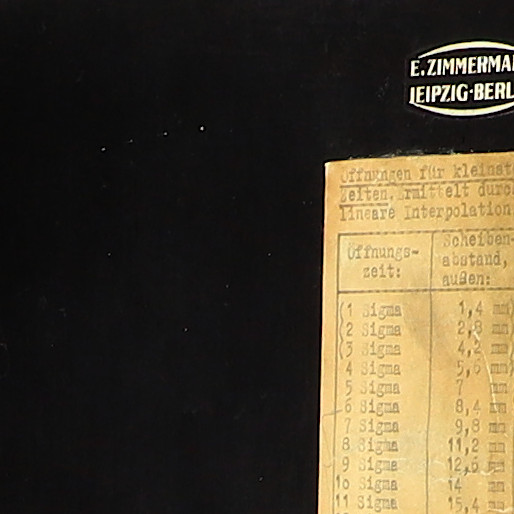 E. ZIMMERMA
LEIPZIG·BERL
Öffnungen für kleinst
Zeiten. Ermittelt durc
lineare Interpolation
Öffnungs-
zeit:
Scheiben-
abstand,
außen:
(1 Sigma 1,4 mm)
(2 Sigma 2,8 mm)
(3 Sigma 4,2 mm)
4 Sigma 5,6 mm
5 Sigma 7 mm
6 Sigma 8,4 mm
7 Sigma 9,8 mm
8 Sigma 11,2 mm
9 Sigma 12,6 mm
1o Sigma 14 mm
11 Sigma 15,4 mm